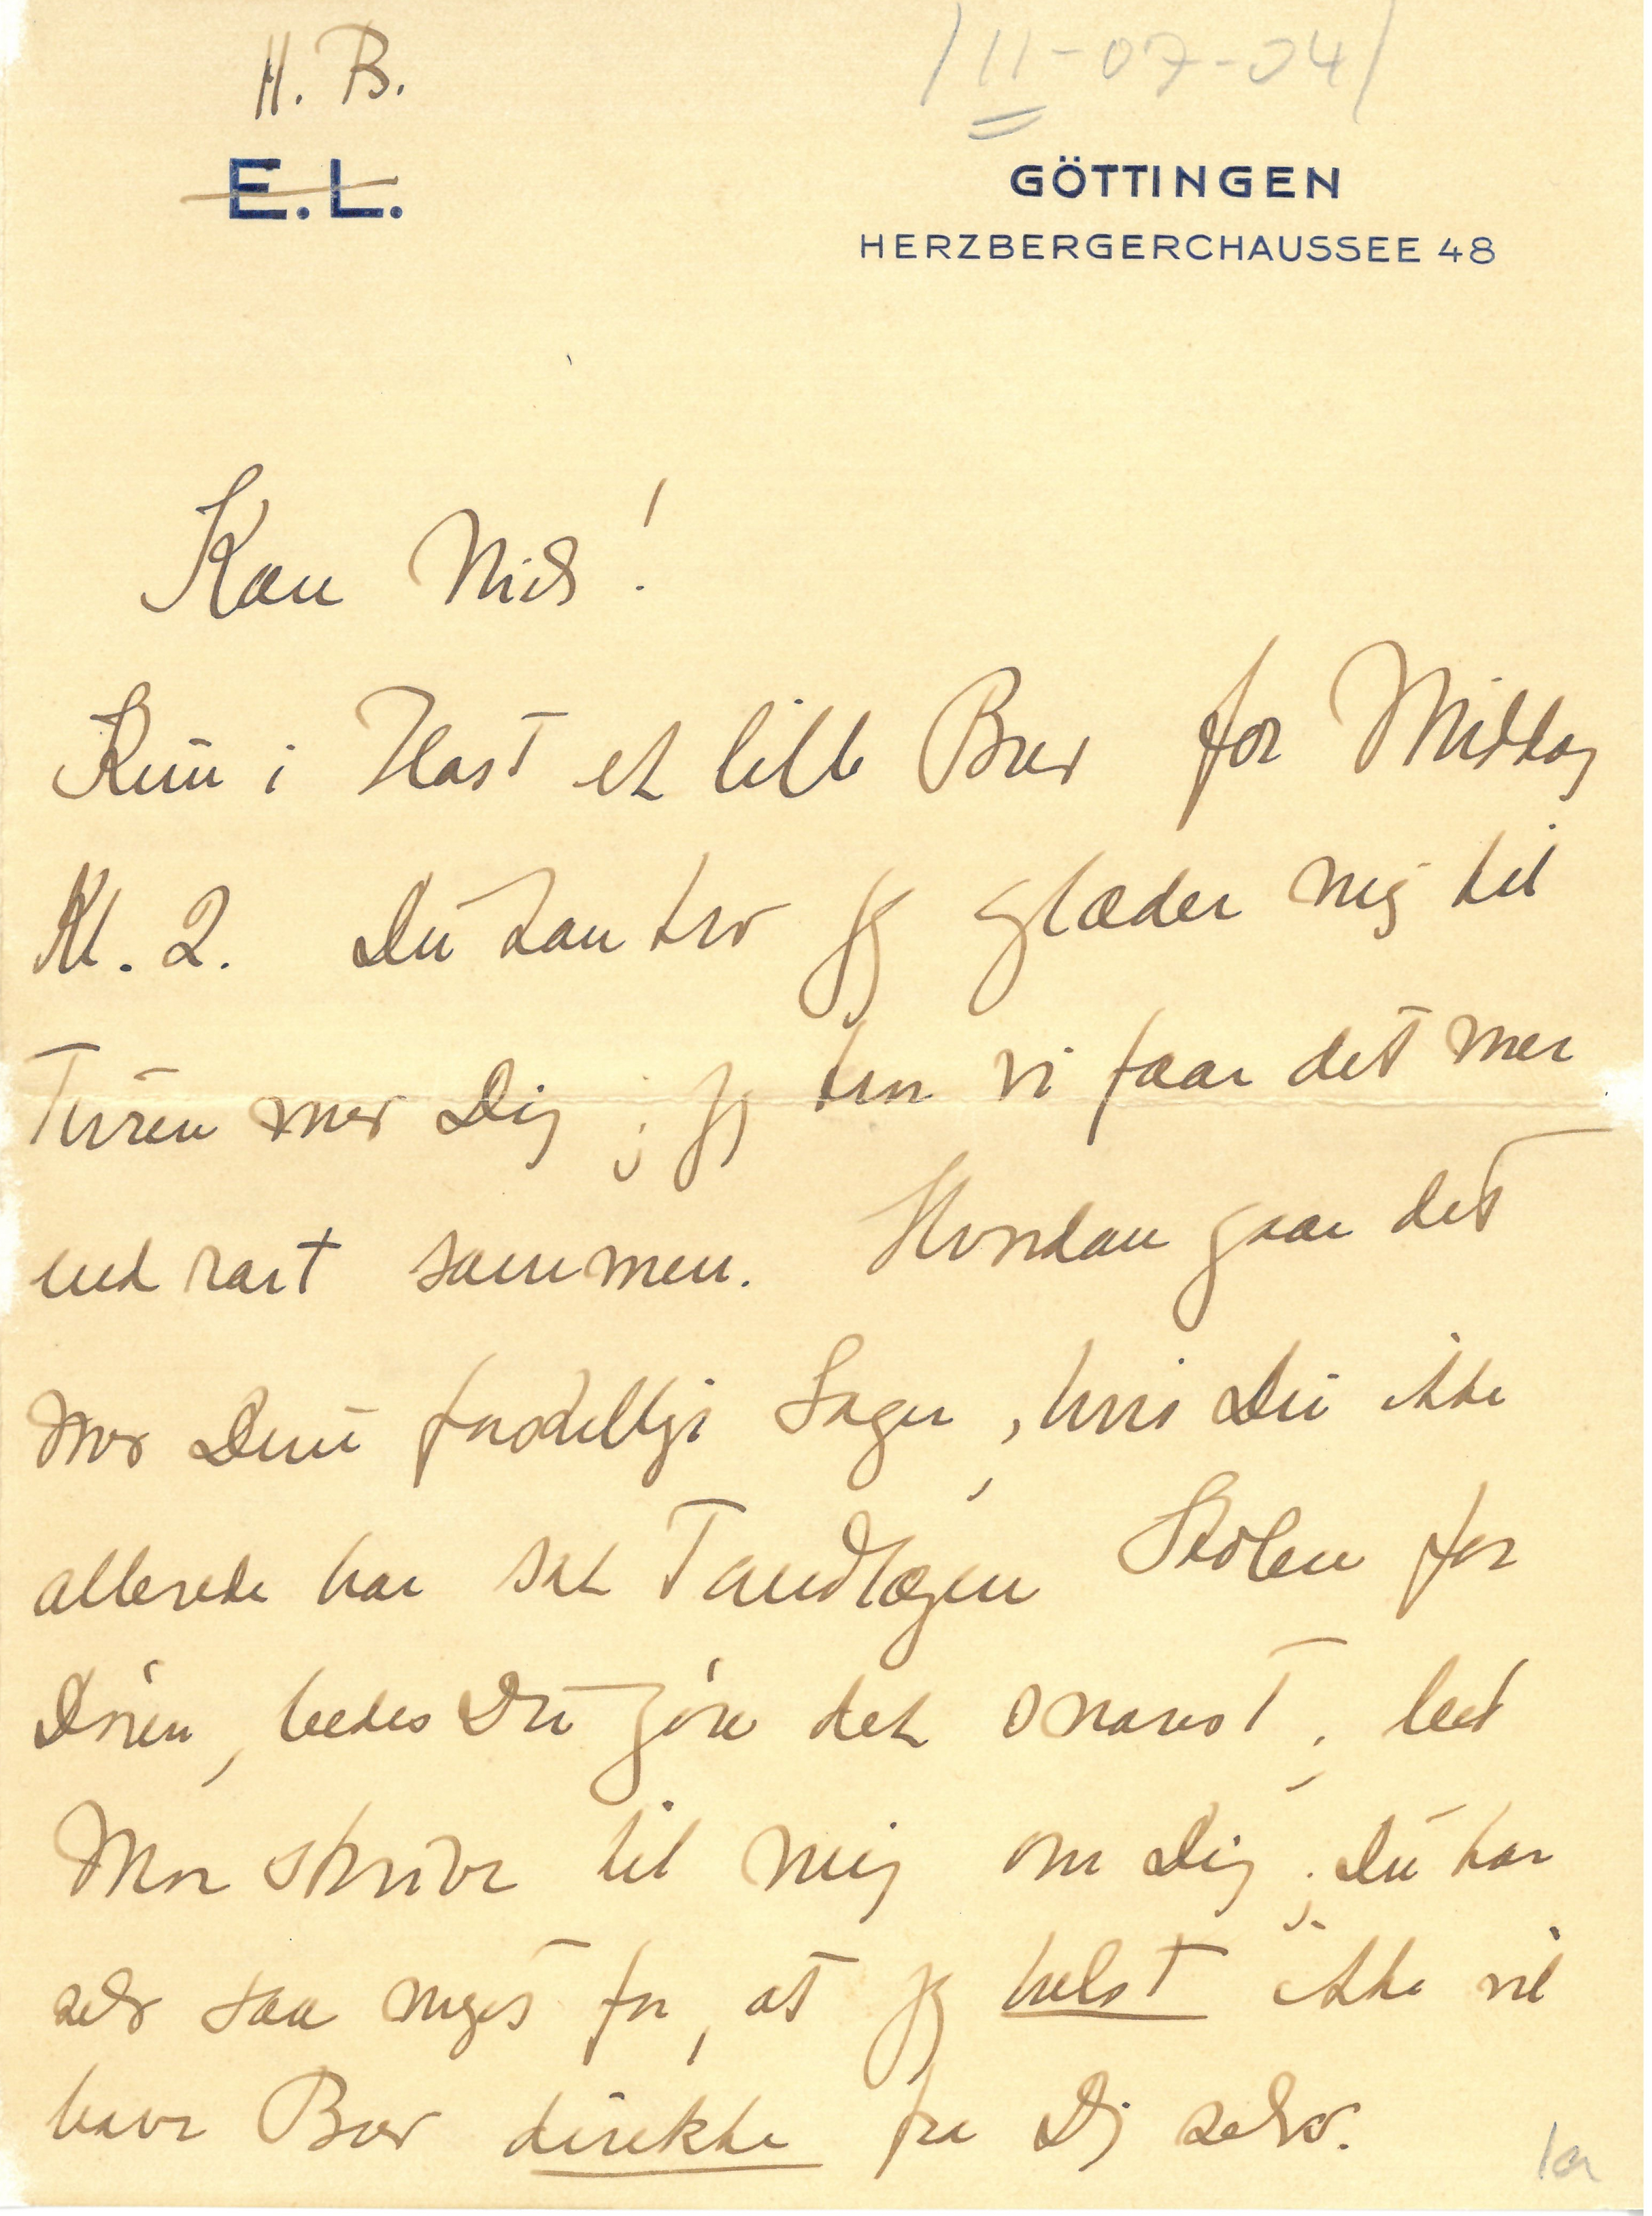 H. B.
/11-07-04/
E. L.
GÖTTINGEN
HERZBERGERCHAUSSEE 48
Kære Niels!
Kun i Hast et lille Brev før Middag
Kl. 2. Du kan tro jeg glæder mig til
Turen med Dig; jeg tror vi faar det mer
end rart sammen. Hvordan gaar det
med Dine forskellige Sager, hvis Du ikke
allerede har sat Tandlægen Stolen for
Døren, bedes Du gøre det snarest; lad
Mor skrive til mig om Dig; Du har
selv saa meget for, at jeg helst ikke vil
have Brev direkte fra Dig selv.
1a